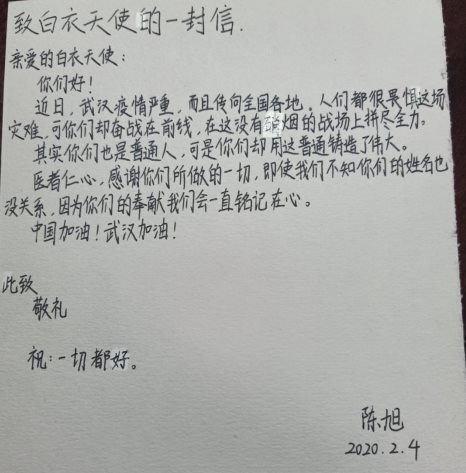 致白衣天使的一封信.
亲爱的白衣天使：
你们好！
近日，武汉疫情严重，而且传向全国各地。人们都很畏惧这场
灾难，可你们却奋战在前线，在这没有硝烟的战场上拼尽全力。
其实你们也是普通人，可是你们却用这普通铸造了伟大。
医者仁心，感谢你们所做的一切，即使我们不知你们的姓名也
没关系，因为你们的奉献我们会一直铭记在心。
中国加油！武汉加油！
此致
敬礼
祝：一切都好。
陈旭
2020.2.4